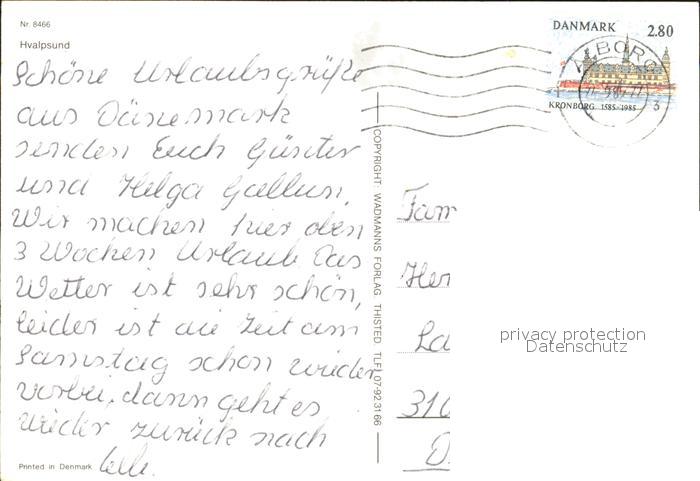 Nr. 8466
Hvalpsund
Schöne Urlaubsgrüße
aus Dänemark
senden Euch Günter
und Helga
Wir machen hier oben
3 Wochen Urlaub. Das
Wetter ist sehr schön,
leider ist die Zeit am
Samstag schon wieder
vorbei, dann geht es
wieder zurück nach
Celle.
Printed in Denmark
COPYRIGHT: WADMANNS FORLAG THISTED TLF. 07-92 31 66
DANMARK 2.80
KRONBORG 1585-1985
Fam
Her
La
310
D
privacy protection
Datenschutz